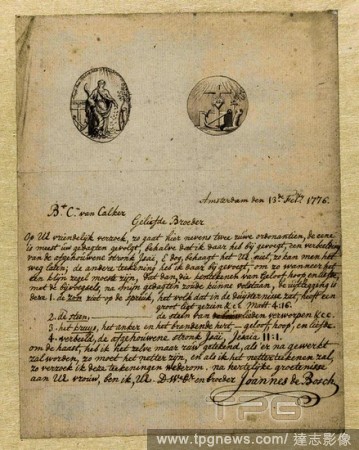 Amsterdam den 13de Febr. 1776.
Br. C. van Calker
Geliefde Broeder
Op Ul vriendelijk verzoek, zo gaat hier nevens twee ruwe ordonantien, de eene
is meest uw gedagten gevolgt, behalve dat ik daar heb bij gevoegt, een verbeelding
van de afgehouwene stronk Jsai, & dog, behaagt het Ul niet, zo kan men het
weg laten; de andere tekening heb ik daar bij gevoegt, om zo wanneer het
een klijn zegel moest zijn, dat dan, die van geloof, hoop en liefde,
met de bijvoegsels, na mijn gedagten zoude kunnen volstaan, de uijtlegging is
deze 1. de zon ziet op de spreuk, het volk dat in de duijsternisse zat, heeft een
groot ligt gezien, &c. Math: 4:16.
2. de steen, de steen van bouwlieden verworpen &c.
3. het kruys, het anker en het brandende hert - geloof, hoop, en liefde.
4. verbeeld, de afgehouwene stronk Jsai, Jesaia 11:1.
om de haast, heb ik het zelve maar raw getekend, als er na gewerkt
zal worden, zo moet het netter zijn, en als ik het netter tekenen zal,
zo verzoek ik deze tekeningen wederom. na hertelyke groetenisse
aan Ul vrouw, ben ik, Ul. D.W. en broeder Joannes de Bosch
TPG
www.tpgnews.com / 達志影像